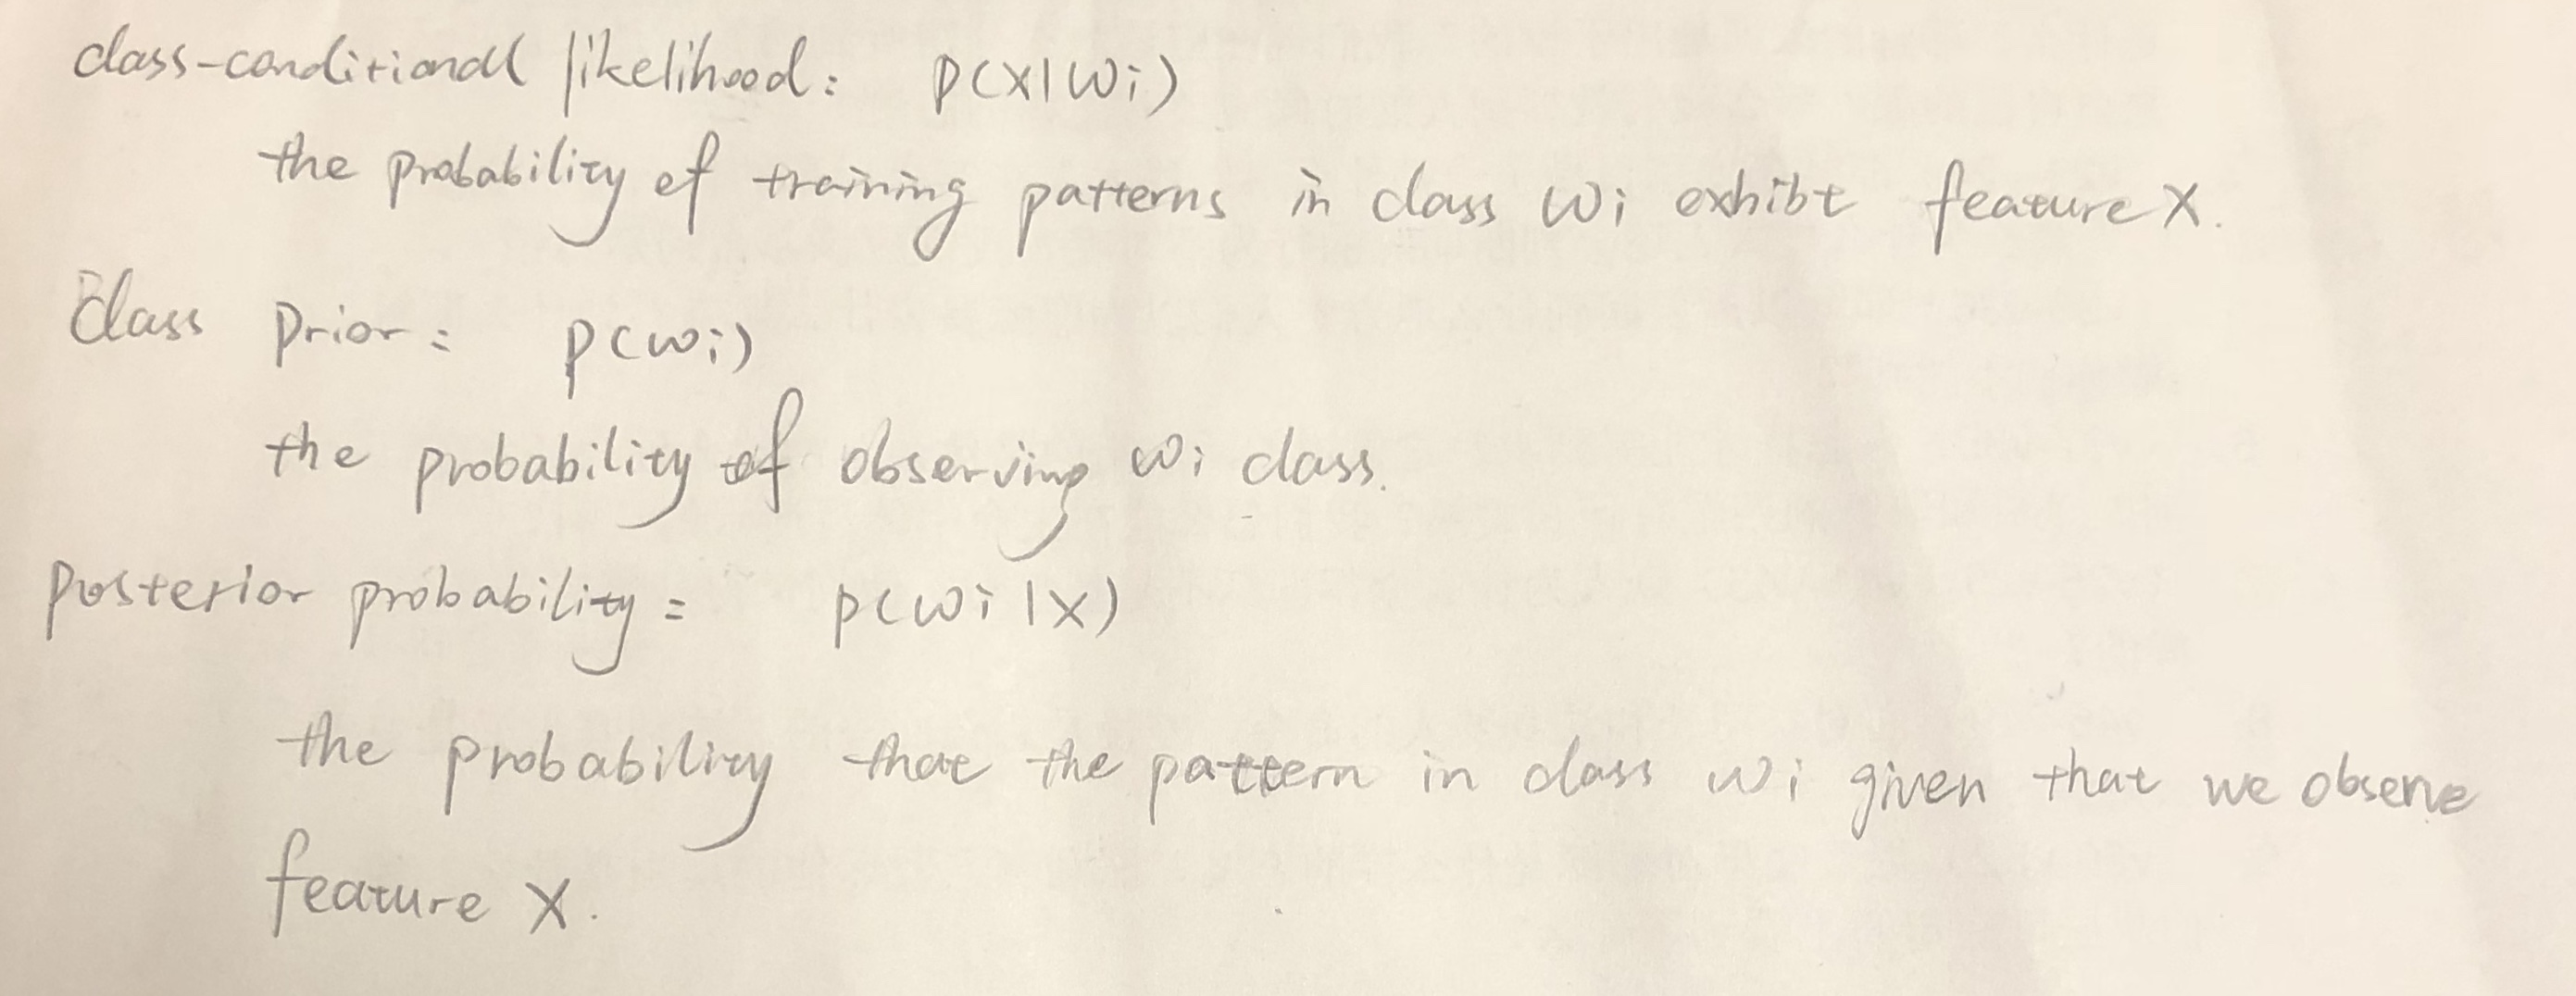 class-conditional likelihood: p(x|wi)
the probability of training patterns in class wi exhibt feature x.
Class prior: p(wi)
the probability of observing wi class.
posterior probability: p(wi|x)
the probability that the pattern in class wi given that we observe
feature x.